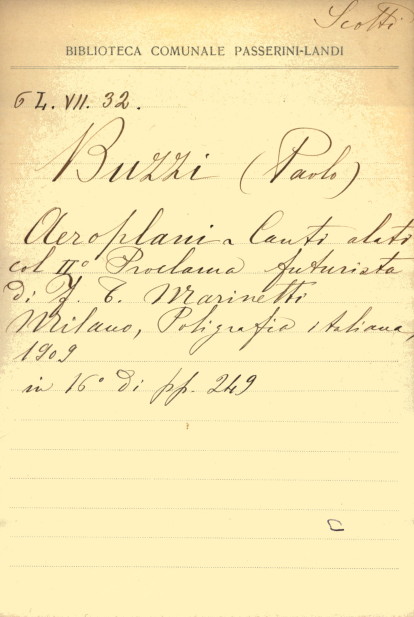 Scotti
BIBLIOTECA COMUNALE PASSERINI-LANDI
6 L. VII. 32.
Buzzi (Paolo)
Aeroplani - Canti alati
col II° Proclama futurista
di F. T. Marinetti
Milano, Poligrafia italiana,
1909
in 16° di pp. 249